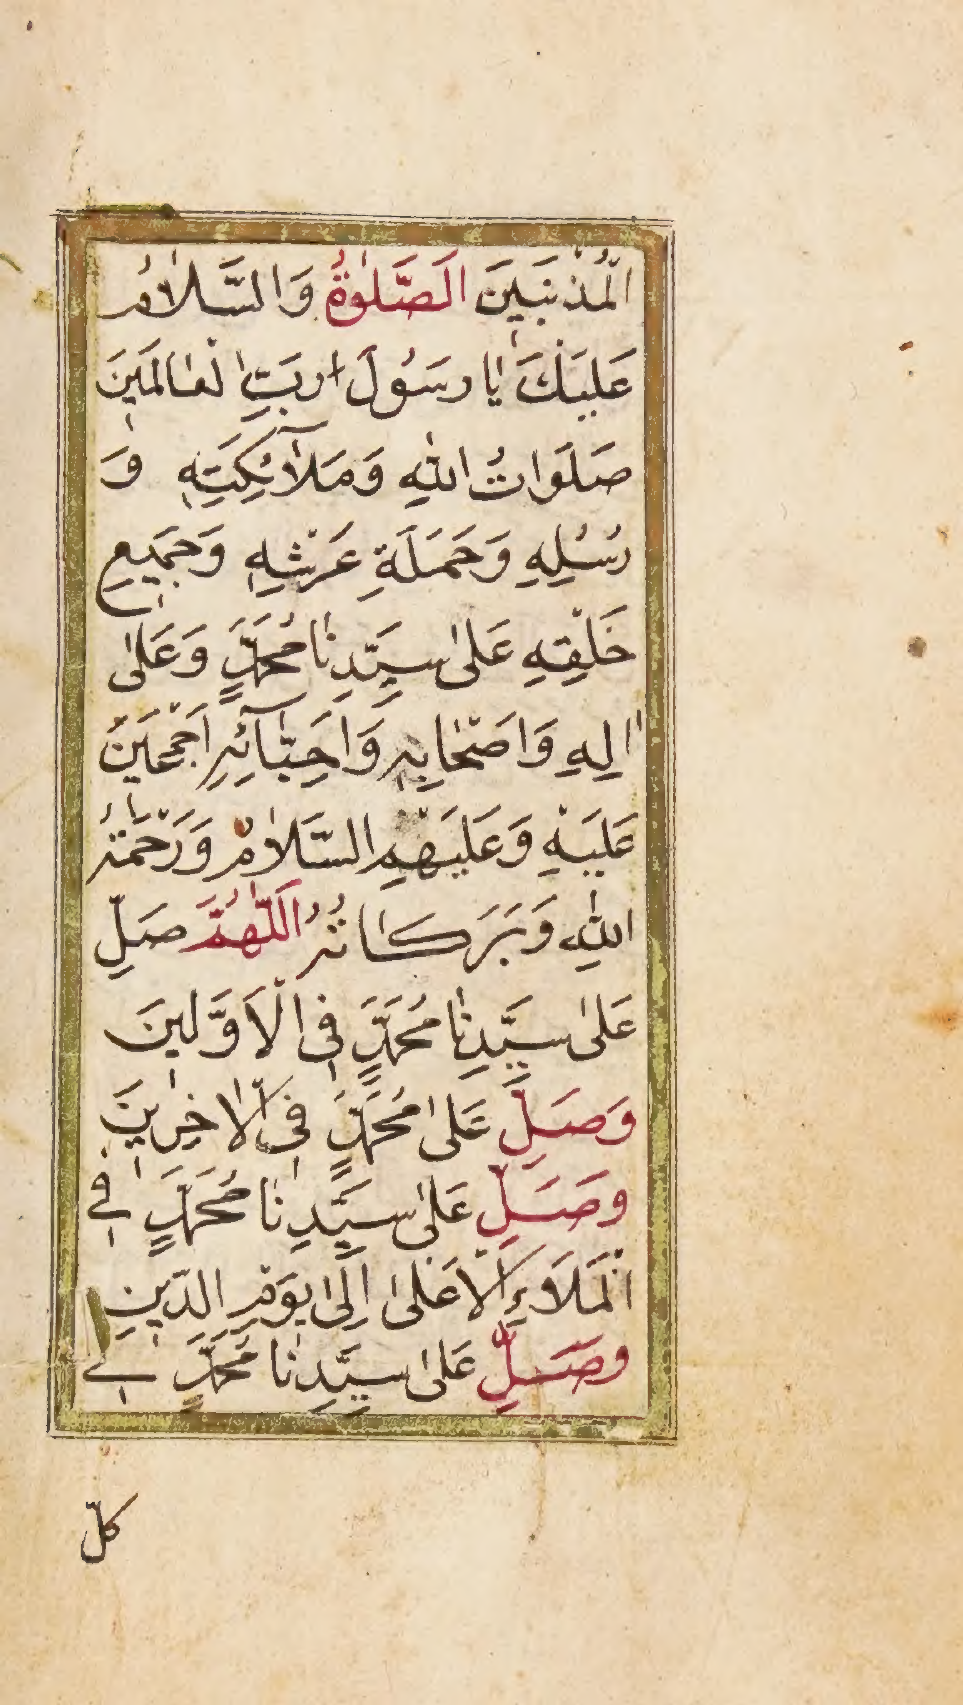 الْمُذْنِبِينَ اَلصَّلٰوةُ وَالسَّلَامُ
عَلَيْكَ يَا رَسُولَ رَبِّ الْعَالَمِينَ
صَلَوَاتُ اللهِ وَمَلَآئِكَتِهِ وَ
رُسُلِهِ وَحَمَلَةِ عَرْشِهِ وَجَمِيعِ
خَلْقِهِ عَلٰى سَيِّدِنَا مُحَمَّدٍ وَعَلٰى
اٰلِهِ وَاَصْحَابِهِ وَاَحِبَّآئِهِ اَجْمَعِينَ
عَلَيْهِ وَعَلَيْهِمُ السَّلَامُ وَرَحْمَةُ
اللهِ وَبَرَكَاتُهُ اَللّٰهُمَّ صَلِّ
عَلٰى سَيِّدِنَا مُحَمَّدٍ فِي الْاَوَّلِينَ
وَصَلِّ عَلٰى مُحَمَّدٍ فِي الْاٰخِرِينَ
وَصَلِّ عَلٰى سَيِّدِنَا مُحَمَّدٍ فِي
الْمَلَاءِ الْاَعْلٰى اِلٰى يَوْمِ الدِّينِ
وَصَلِّ عَلٰى سَيِّدِنَا مُحَمَّدٍ فِي
كلّ